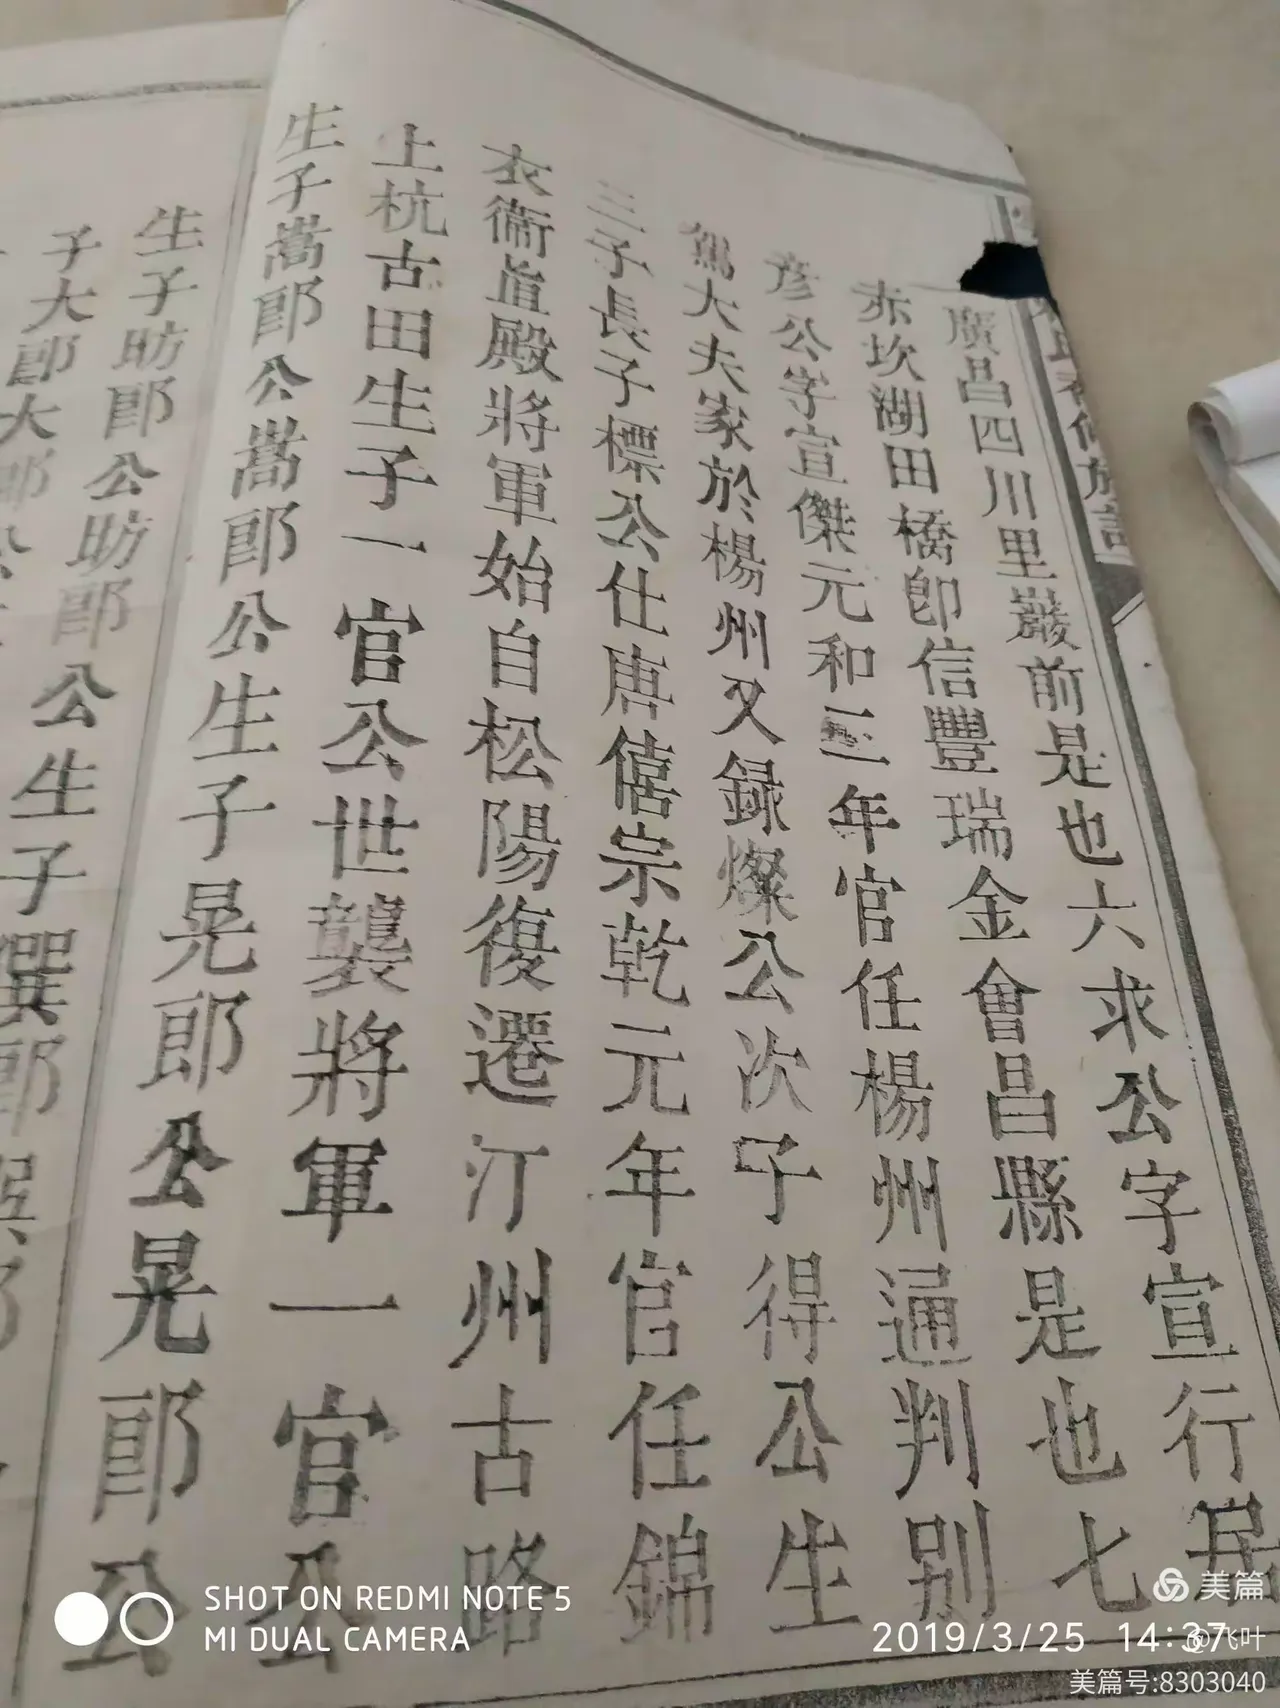 廣昌四川里巖前是也六求公字宣行居
赤坎湖田橋卽信豐瑞金會昌縣是也七
彦公字宣傑元和三年官任楊州通判别
駕大夫家於楊州又録燦公次子得公生
三子長子標公仕唐僖宗乾元年官任錦
衣衞直殿將軍始自松陽復遷汀州古路
上杭古田生子一官公世襲將軍一官公
生子嵩郎公嵩郎公生子晃郎公晃郎公
生子昉郎公昉郎公生子撰郎
子大郎大郎
SHOT ON REDMI NOTE 5
MI DUAL CAMERA
2019/3/25 14:37
美篇
@飞叶
美篇号:8303040